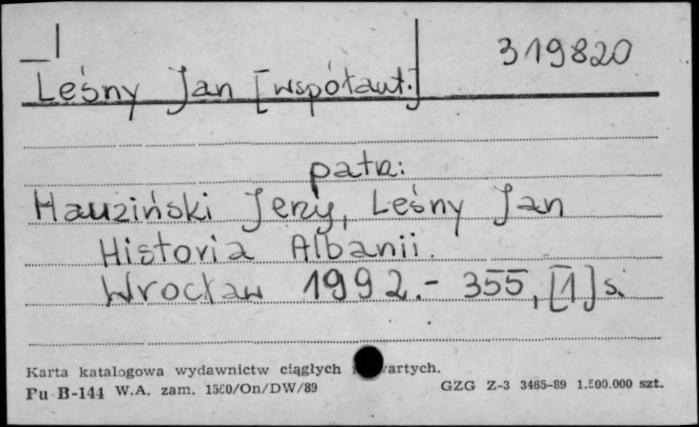 319820
Leśny Jan [współaut.]
patrz:
Hauziński Jerzy, Leśny Jan
Historia Albanii.
Wrocław 1992.- 355, [1] s.
Karta katalogowa wydawnictw ciągłych i zwartych.
Pu B-144 W.A. zam. 1500/On/DW/89 GZG Z-3 3465-89 1.500.000 szt.